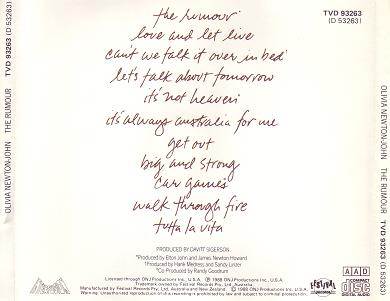 TVD 93263
(D 53263)
the rumour
love and let live
can't we talk it over in bed*
let's talk about tomorrow
it's not heaven
it's always australia for me
get out
big and strong
car games
walk through fire
tutta la vita
PRODUCED BY DAVITT SIGERSON.
*Produced by Elton John and James Newton Howard
†Produced by Hank Medress and Sandy Linzer
°Co-Produced by Randy Goodrum
Licensed through ONJ Productions Inc., U.S.A. ℗ 1988 ONJ Productions Inc., U.S.A.
Trademark owned by Festival Records Pty. Ltd. Australia.
Manufactured by Festival Records Pty. Ltd. Australia and New Zealand. © 1988 ONJ Productions Inc., U.S.A.
Warning: Unauthorised reproduction of this recording is prohibited by law and subject to criminal prosecution.
FESTIVAL
AAD
COMPACT
disc
DIGITAL AUDIO
OLIVIA NEWTON-JOHN THE RUMOUR TVD 93263 (D 53263)
OLIVIA NEWTON-JOHN THE RUMOUR TVD 93263 (D 53263)